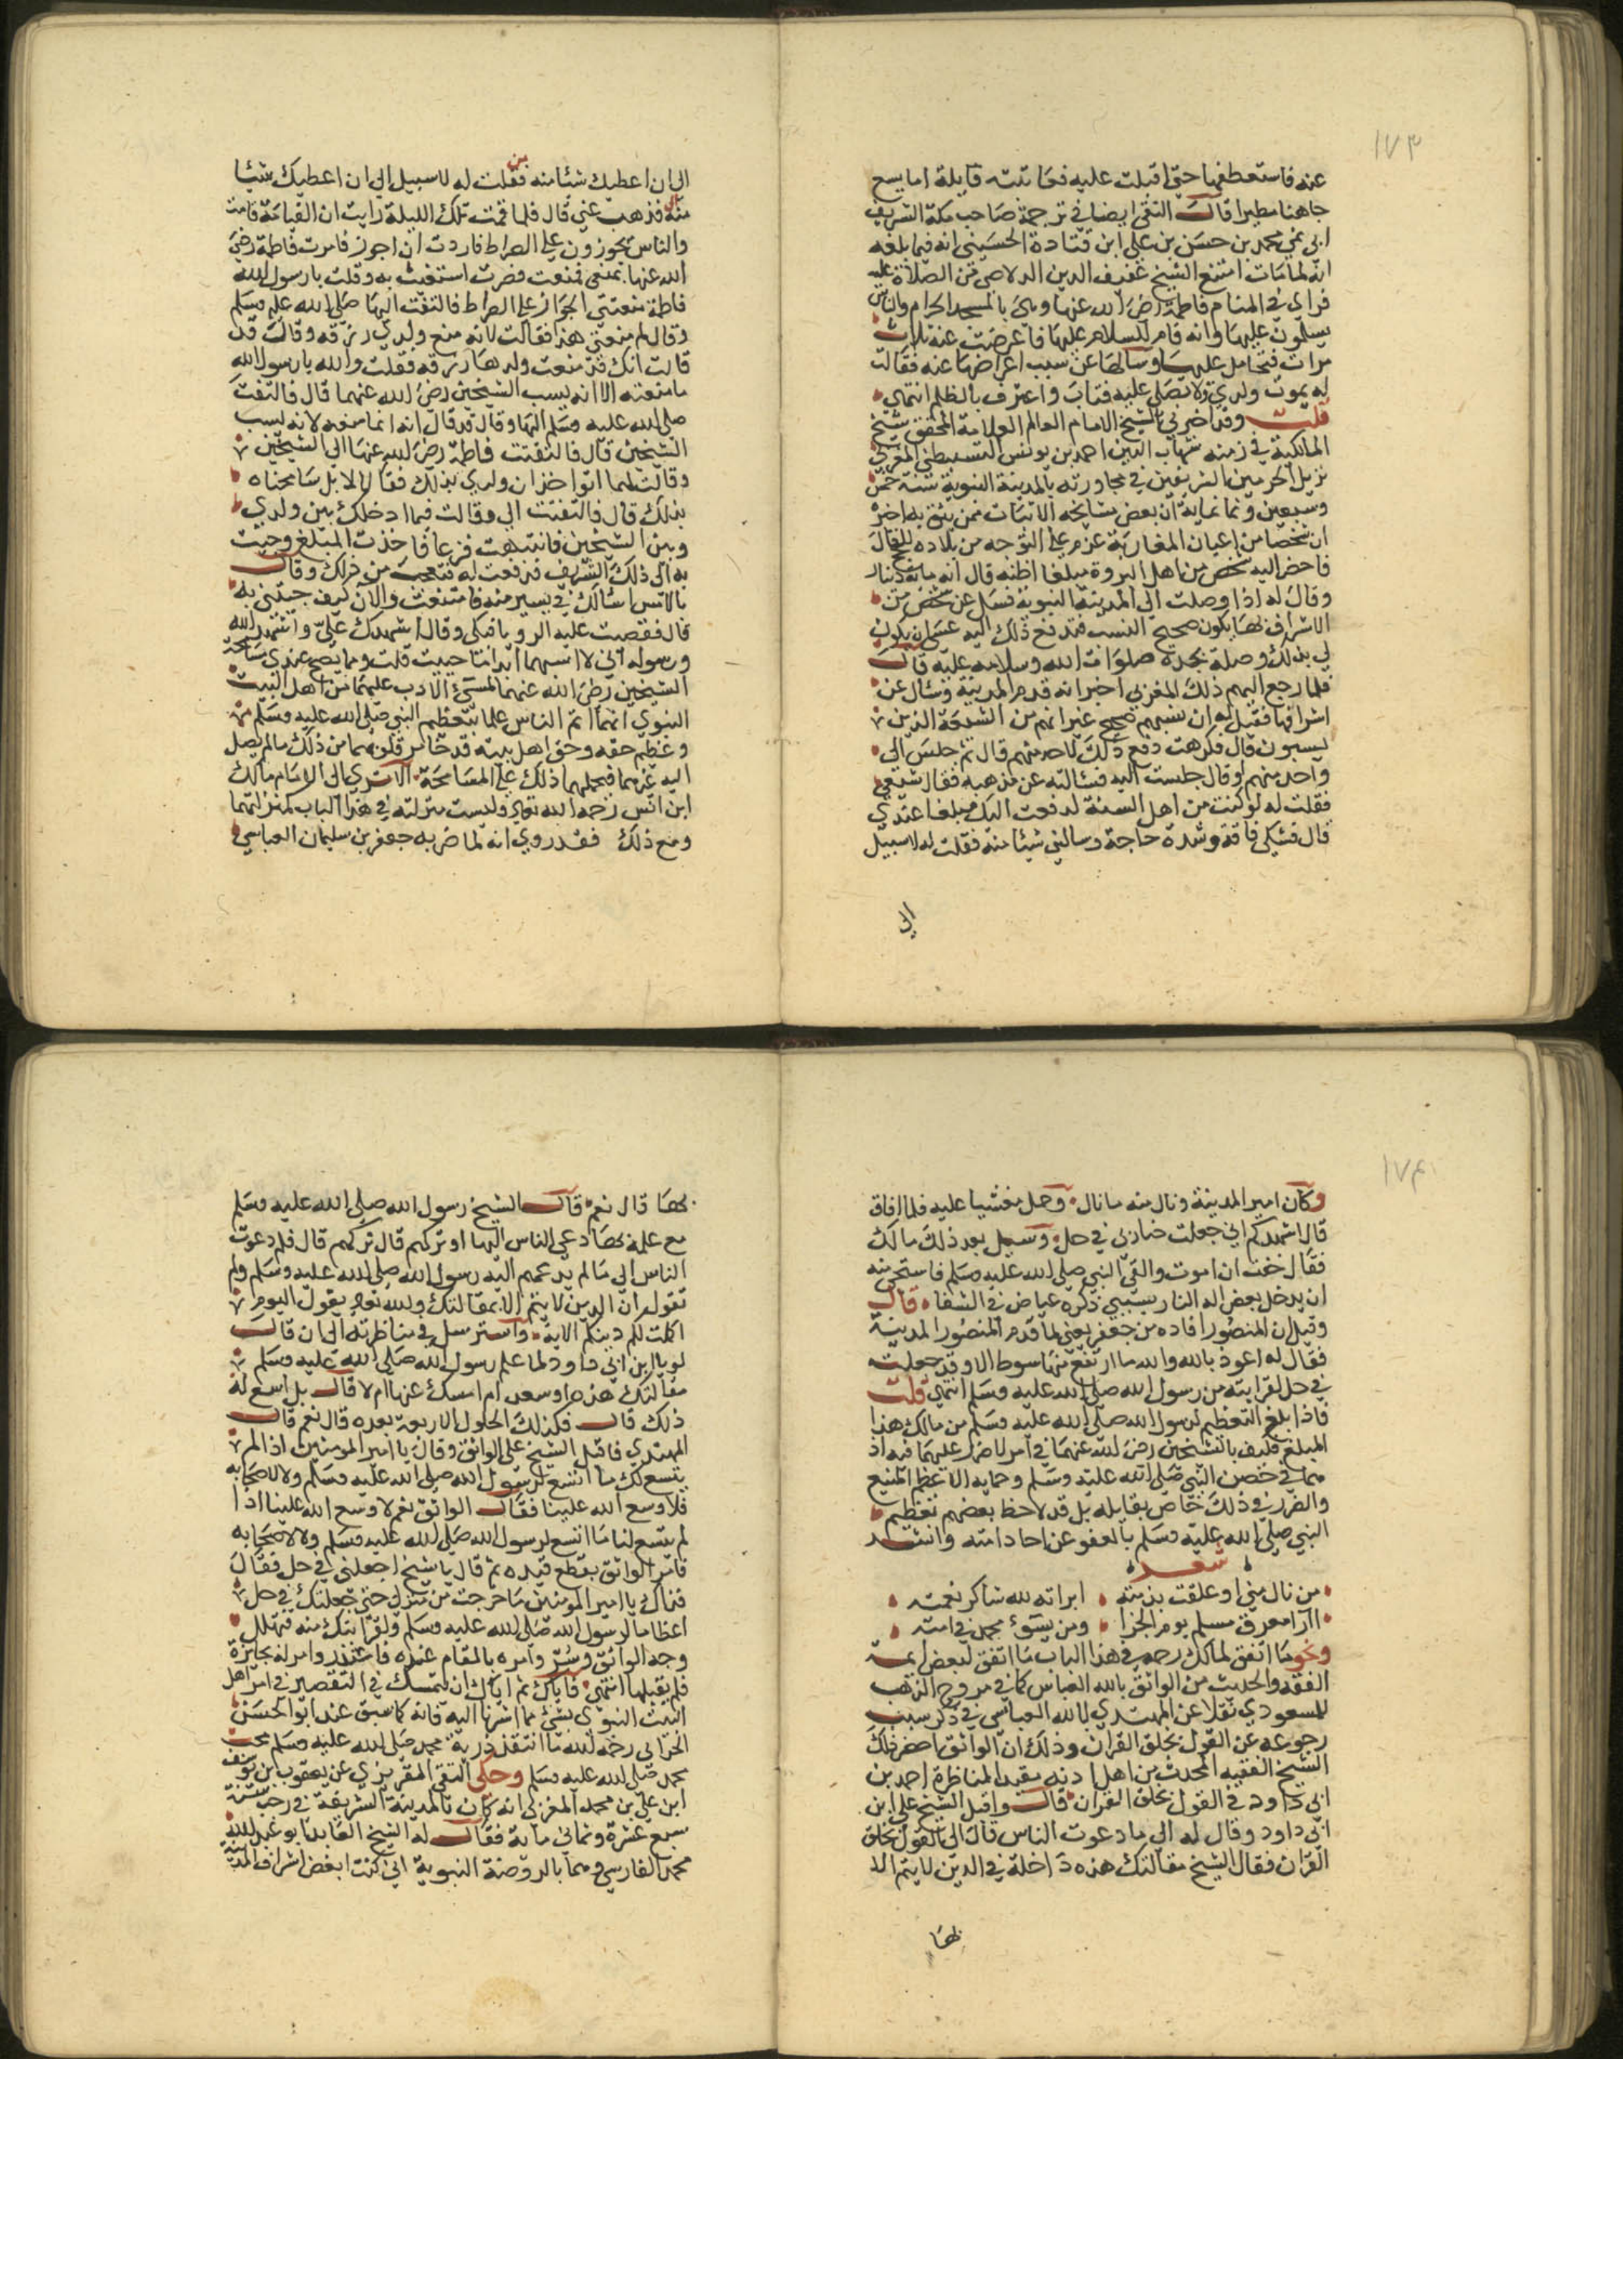 ١٧٣
عنه فاستعطفها حتى اقبلت عليه فعاتبته قايلة اما يسع
جاهنا مطيرا قال التقي ايضا في ترجمة صاحب مكة الشريف
ابي نمي محمد بن حسن بن علي ابن قتادة الحسيني انه فيما بلغه
انه لما مات امتنع الشيخ عفيف الدين الدلاصي من الصلاة عليه
فراى في المنام فاطمة رضى الله عنها وهي بالمسجد الحرام والناس
يسلمون عليها وانه قام للسلام عليها فاعرضت عنه ثلاث
مرات فتحامل عليها وسالها عن سبب اعراضها عنه فقالت
له يموت ولدي ولا تصلي عليه فتاب واعترف بالظلم انتهى
قلت وقد اخبرني الشيخ الامام العالم العلامة المحقق شيخ
المالكية في زمنه شهاب الدين احمد بن يونس القسنطيني المغربي
نزيل الحرمين الشريفين في مجاورته بالمدينة النبوية سنة خمس
وسبعين وثمانماية ان بعض مشايخه الاثبات ممن يثق به اخبره
ان شخصا من اعيان المغاربة عزم على التوجه من بلاده للحج قال
فاحضر اليه شخص من اهل الثروة مبلغا اظنه قال انه ماية دينار
وقال له اذا وصلت الى المدينة النبوية فسل عن شخص من
الاشراف بها يكون صحيح النسب فتدفع ذلك اليه عسى ان يكون
لي بذلك وصلة بجده صلوات الله وسلامه عليه قال
فلما رجع اليهم ذلك المغربي اخبر انه قدم المدينة وسال عن
اشرافها فقيل له ان نسبهم صحيح غير انهم من الشيعة الذين
يسبون قال فكرهت دفع ذلك لاحد منهم قال ثم جلس الي
واحد منهم او قال جلست اليه فسالته عن مذهبه فقال شيعي
فقلت له لو كنت من اهل السنة لدفعت اليك مبلغا عندي
قال فشكى فاقة وشدة حاجة وسالني شيئا منه فقلت له لا سبيل
الى
الى ان اعطيك شيئا منه فقلت له لا سبيل الى ان اعطيك شيئا
منه فذهب عني قال فلما نمت تلك الليلة رايت ان القيامة قامت
والناس يجوزون على الصراط فاردت ان اجوز فامرت فاطمة رضى
الله عنها بمنعي فمنعت فصرت استغيث به وقلت يا رسول الله
فاطمة منعتني الجواز على الصراط فالتفت اليها صلى الله عليه وسلم
وقال لم منعتي هذا فقالت لانه منع ولدي رزقه وقالت قد
قالت انك قد منعت ولدها رزقه فقلت والله يا رسول الله
ما منعته الا انه يسب الشيخين رضى الله عنهما قال فالتفت
صلى الله عليه وسلم اليها وقال قد قال انه انما منعه لانه يسب
الشيخين قال فالتفتت فاطمة رضى الله عنها الى الشيخين
وقالت لهما اتواخذان ولدي بذلك فقالا لا بل سامحناه
بذلك قال فالتفتت الي وقالت فما ادخلك بين ولدي
وبين الشيخين فانتبهت فزعا فاخذت المبلغ وجيت
به الى ذلك الشريف فدفعت له فتعجب من ذلك وقال
بالامس اسالك في يسير منه فامتنعت والان كيف جيتني به
قال فقصيت عليه الرويا فبكى وقال اشهدك علي واشهد الله
ورسوله اني لا اسبهما ابدا ما حييت قلت ومما يصح عندي مسامحة
الشيخين رضى الله عنهما لمسيء الادب عليهما من اهل البيت
النبوي انهما اتم الناس علما بتعظيم النبي صلى الله عليه وسلم
وعظيم حقه وحق اهل بيته قد خالط قلوبهما من ذلك ما لم يصل
اليه غيرهما فيحملهما ذلك على المسامحة الا ترى الى الامام مالك
ابن انس رحمه الله تعالى وليست منزلته في هذا الباب كمنزلتهما
ومع ذلك فقد روي انه لما ضربه جعفر بن سليمان العباسي
١٧٤
وكان امير المدينة ونال منه ما نال وحمل مغشيا عليه فلما افاق
قال اشهدكم اني جعلت ضاربي في حل وسيل بعد ذلك مالك
فقال خفت ان اموت والقى النبي صلى الله عليه وسلم فاستحي منه
ان يدخل بعض اله النار بسببي ذكره عياض في الشفاء قال
وقيل ان المنصور اقاده من جعفر يعني لما قدم المنصور المدينة
فقال له اعوذ بالله والله ما ارتفع منها سوط الا وقد جعلته
في حل لقرابته من رسول الله صلى الله عليه وسلم انتهى قلت
فاذا بلغ التعظيم لرسول الله صلى الله عليه وسلم من مالك هذا
المبلغ فكيف بالشيخين رضى الله عنهما في امر لا ضرر عليهما فيه اذ
هما في حصن النبي صلى الله عليه وسلم وحمايه الاعظم المنيع
والضرر في ذلك خاص بقايله بل قد لاحظ بعضهم تعظيم
النبي صلى الله عليه وسلم بالعفو عن احاد امته وانشد
شعر
من نال مني او علقت بذمته ابراته لله شاكر نعمته
اارا معوق مسلم يوم الجزا ومن يسوء محمد في امته
ونحو ما اتفق لمالك رحمه في هذا الباب ما اتفق لبعض ايمة
الفقه والحديث من الواثق بالله العباس كما في مروج الذهب
للمسعودي نقلا عن المهتدي بالله العباسي في ذكر سبب
رجوعه عن القول بخلق القران وذلك ان الواثق احضر ذلك
الشيخ الفقيه المحدث من اهل ادنه مقيد المناظرة احمد بن
ابي داود في القول بخلق القران قال واقبل الشيخ على ابن
ابي داود وقال له الى ما دعوت الناس قال الى القول بخلق
القران فقال الشيخ مقالتك هذه داخلة في الدين لا يتم الا
بها
بها قال نعم قال الشيخ رسول الله صلى الله عليه وسلم
مع علمه بها دعى الناس اليها او تركهم قال تركهم قال فلم دعوت
الناس الى ما لم يدعهم اليه رسول الله صلى الله عليه وسلم ولم
تقول ان الدين لا يتم الا بمقالتك والله تعالى يقول اليوم
اكملت لكم دينكم الاية واسترسل في مناظرته الى ان قال
لو يا ابن ابي داود لما علم رسول الله صلى الله عليه وسلم
مقالتك هذه اوسعه ام امسك عنها ام لا قال بل اسع له
ذلك قال فكذلك الحلول الاربعة بعده قال نعم قال
المهتدي فاقبل الشيخ على الواثق وقال يا امير المومنين اذا لم
يتسع لك ما اتسع لرسول الله صلى الله عليه وسلم ولا لاصحابه
فلا وسع الله علينا فقال الواثق نعم لا وسع الله علينا اذا
لم يتسع لنا ما اتسع لرسول الله صلى الله عليه وسلم ولا لاصحابه
فامر الواثق بقطع قيده ثم قال يا شيخ اجعلني في حل فقال
فقال لي يا امير المومنين ما خرجت من منزلي حتى جعلتك في حل
اعظاما لرسول الله صلى الله عليه وسلم ولقرابتك منه فتهلل
وجه الواثق وسر وامره بالمقام عنده فاعتذر وامر له بجايزة
فلم يقبلها انتهى فاياك ثم اياك ان تتمسك في التقصير في امر اهل
البيت النبوي بشيء مما اشرنا اليه فانه كما سبق عند ابو الحسن
الحرالي رحمه الله ما انتقد ذرية محمد صلى الله عليه وسلم محب
محمد صلى الله عليه وسلم وحكى التقي المقريزي عن يعقوب ابن يوسف
ابن علي بن محمد المغربي انه كان بالمدينة الشريفة في رجب سنة
سبع عشرة وثماني ماية فقال له الشيخ العابد ابو عبد الله
محمد الفارسي وهما بالروضة النبوية اني كنت ابغض اشراف المدينة